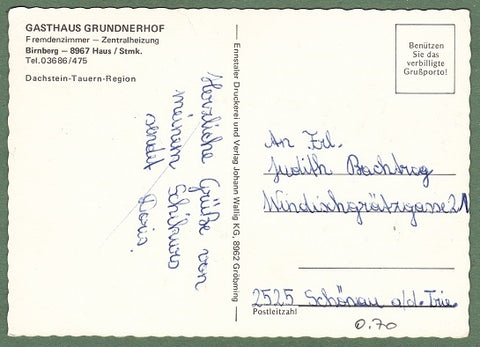 GASTHAUS GRUNDNERHOF
Fremdenzimmer – Zentralheizung
Birnberg – 8967 Haus / Stmk.
Tel.03686/475
Dachstein-Tauern-Region
Herzliche Grüße von
meinem Schikurs
sendet Doris.
Ennstaler Druckerei und Verlag Johann Wallig KG, 8962 Gröbming
Benützen
Sie das
verbilligte
Grußporto!
An Frl.
Judith Bachtrog
Windischgrätzgasse 21
2525 Schönau a/d. Trie.
Postleitzahl
0.70